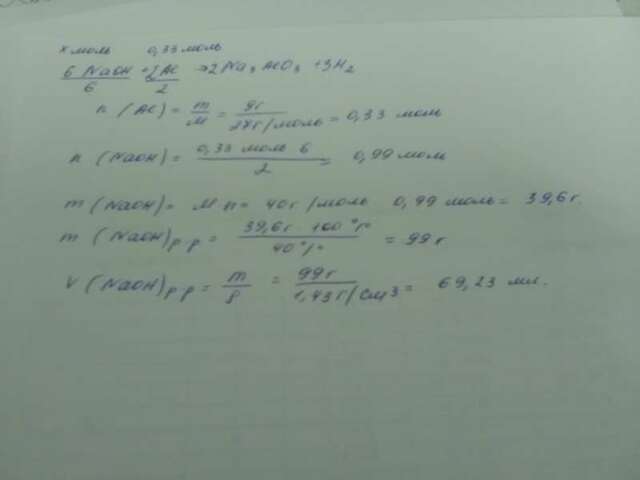 x моль 0,33 моль
6 NaOH + 2Al → 2Na3AlO3 + 3H2
6 2
n (Al) = m/M = 9г / 27г/моль = 0,33 моль
n (NaOH) = 0,33 моль 6 / 2 = 0,99 моль
m (NaOH) = M n = 40г/моль 0,99 моль = 39,6г.
m (NaOH)р-р = 39,6г · 100% / 40% = 99г
V (NaOH)р-р = m/ρ = 99г / 1,43г/см3 = 69,23 мл.